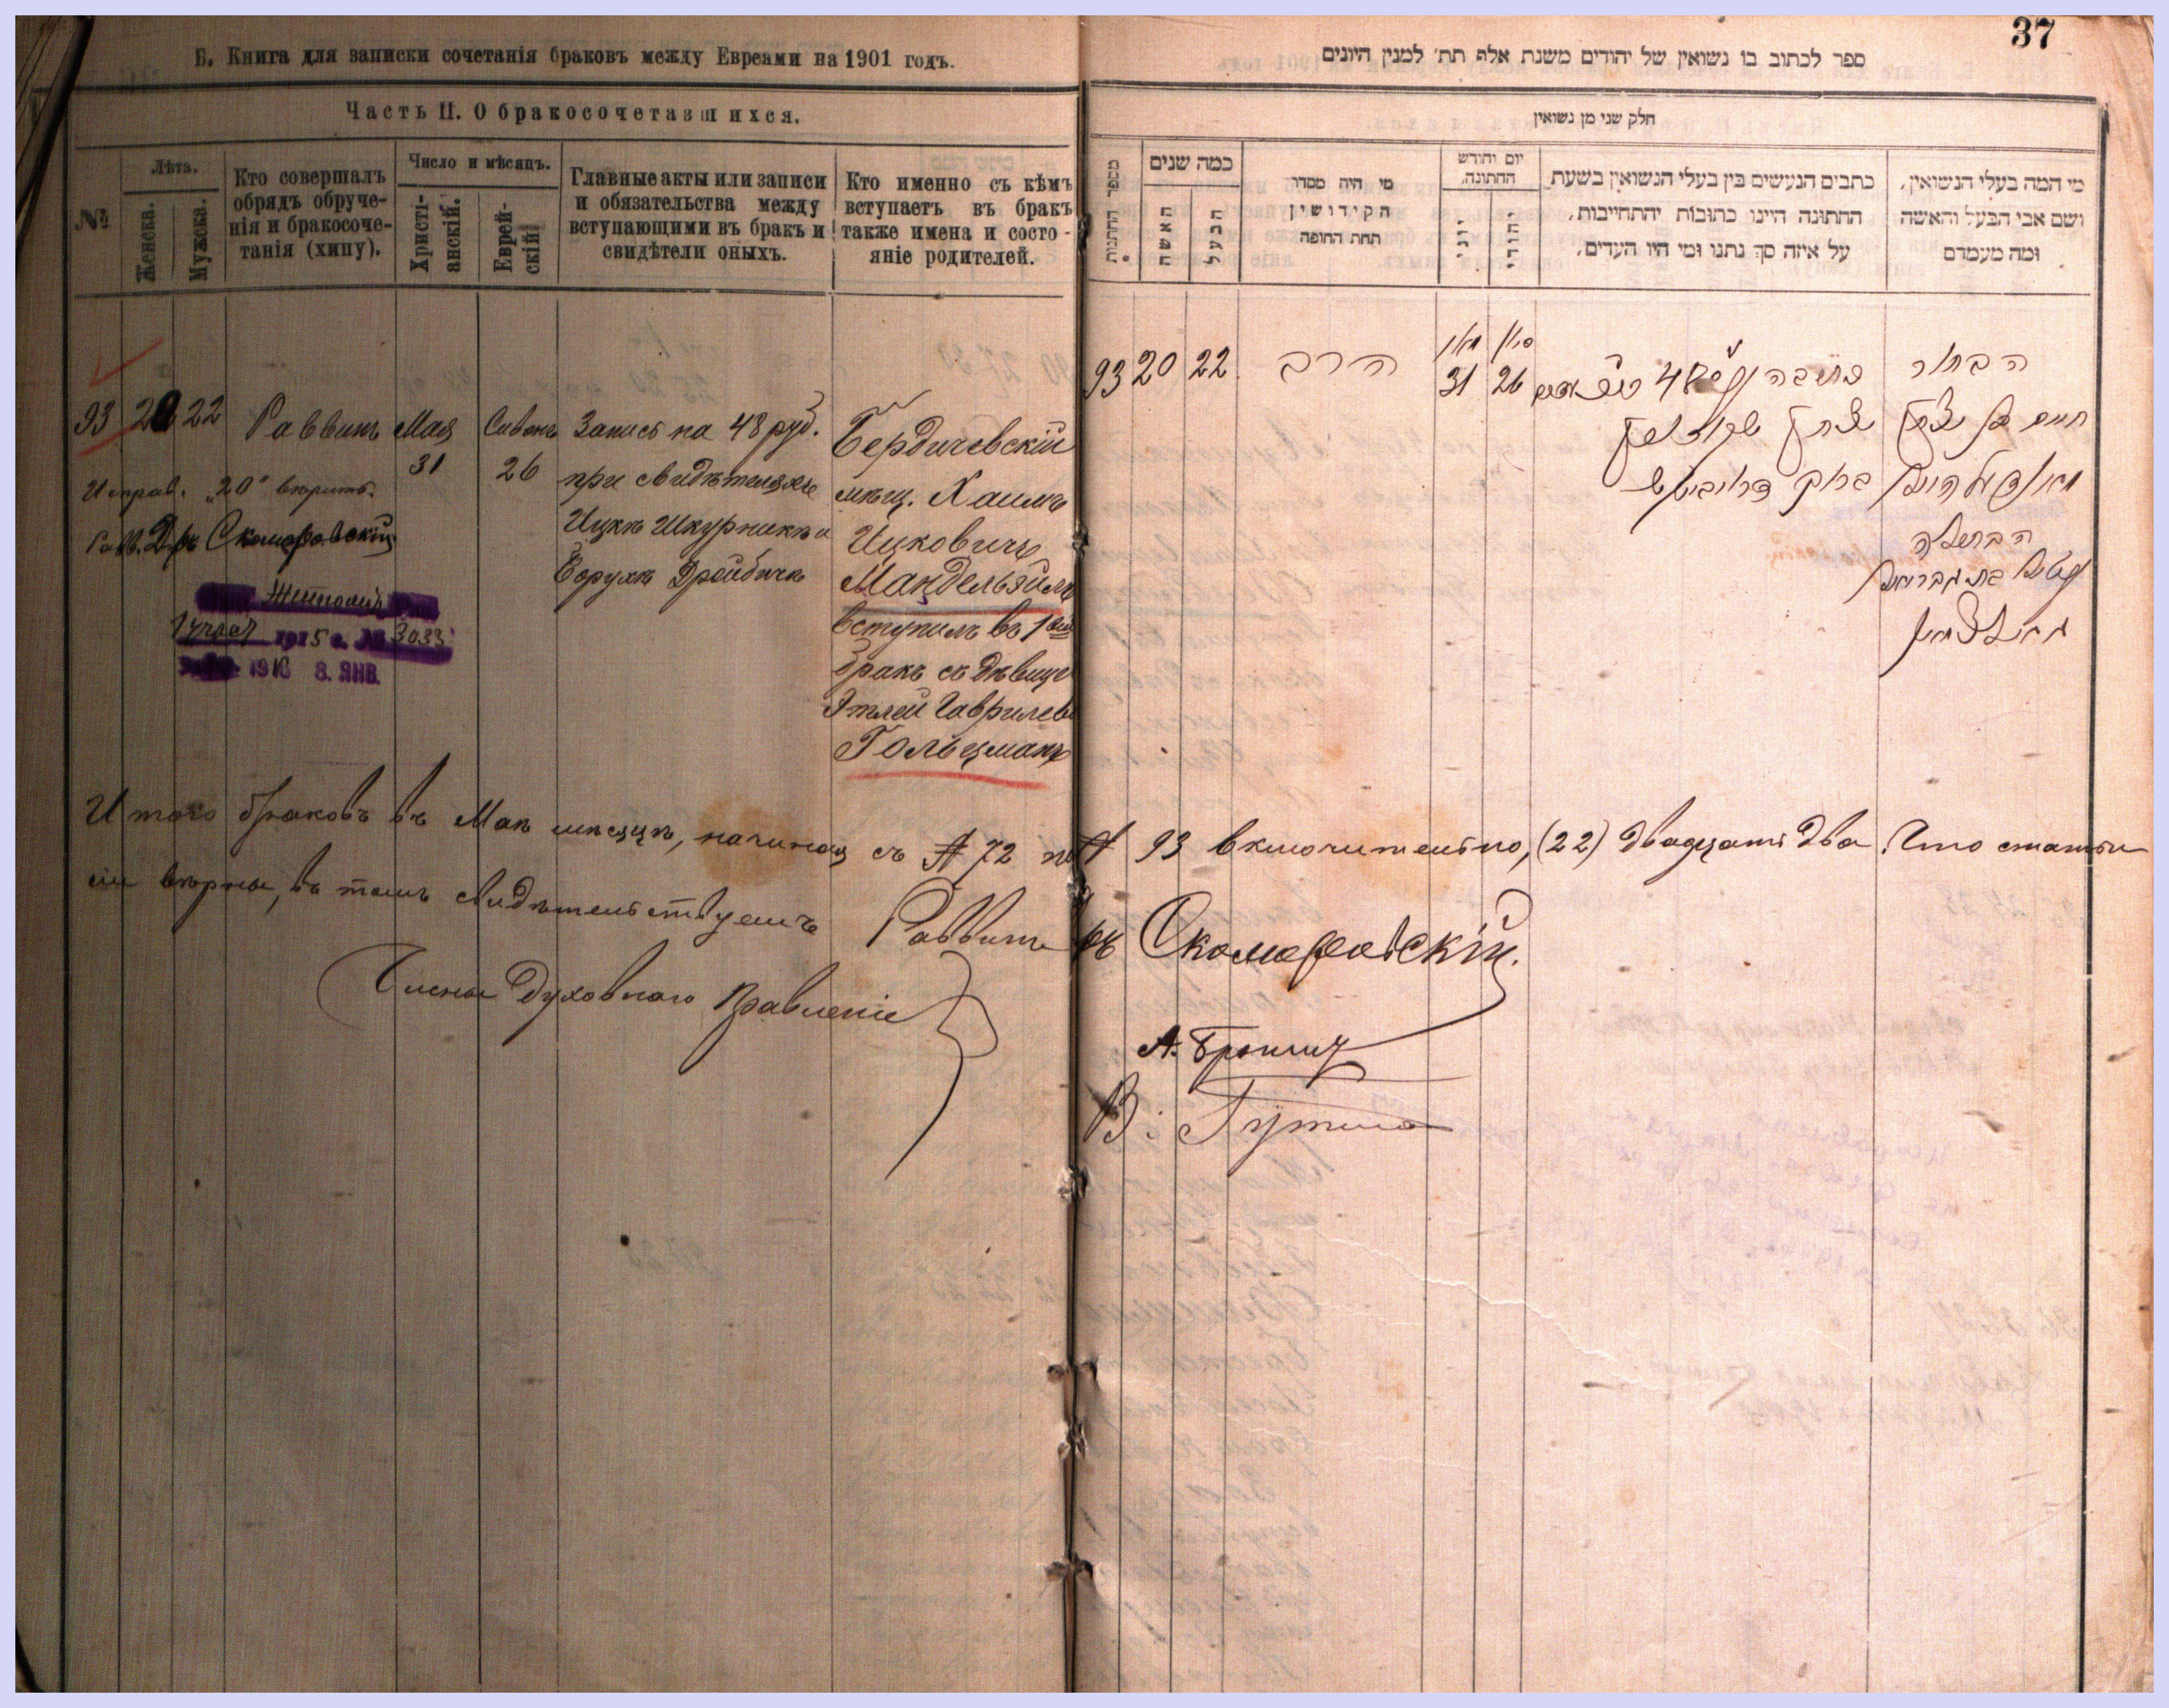 37
Б. Книга для записки сочетанія браковъ между Евреями на 1901 годъ.
Часть II. О бракосочетавшихся.
№
Лѣта.
Женска.
Мужска.
Кто совершалъ
обрядъ обруче-
нія и бракосоче-
танія (хипу).
Число и мѣсяцъ.
Христі-
анскій.
Еврей-
скій
Главные акты или записи
и обязательства между
вступающими въ бракъ и
свидѣтели оныхъ.
Кто именно съ кѣмъ
вступаетъ въ бракъ
также имена и состо-
яніе родителей.
93 20 22 Раввинъ Мая 31 Сивонъ 26
Запись на 48 руб.
при свидѣтеляхъ
Ицкѣ Шкурникѣ и
Борухѣ
Бердичевскій
мѣщ. Хаимъ
Ицковичъ
Мандельэйль
вступилъ въ 1ый
бракъ съ дѣвице
Этлей Гаврилев
Гольцманъ
Исправ. „20“ вѣрить.
Равв. Д-ръ Скоморовскій
Житомір
1915 г. № 3033
1916 8. ЯНВ.
ספר לכתוב בו נשואין של יהודים משנת אלף תת׳ למנין היונים
חלק שני מן נשואין
מספר החתנות
כמה שנים
האשה
הבעל
מי היה מסדר
הקידושין
תחת החופה
יום וחודש
החתונה.
יוני
יהודי
כתבים הנעשים בין בעלי הנשואין בשעת
החתונה היינו כתובות יהתחייבות,
על איזה סך נתנו ומי היו העדים,
מי המה בעלי הנשואין,
ושם אבי הבעל והאשה
ומה מעמדם
93 20 22 הרב מאי 31 סיון 26
כתובה 48
הבחור
חיים בן יצחק
הבתולה
Итого браковъ въ Маѣ мѣсяцѣ, начиная съ № 72 по № 93 включительно, (22) двадцать два. Что статьи
сіи вѣрны, въ томъ свидѣтельствуемъ Раввинъ Скоморовскій.
Члены Духовнаго Правленіе
А. Бронцъ
В.